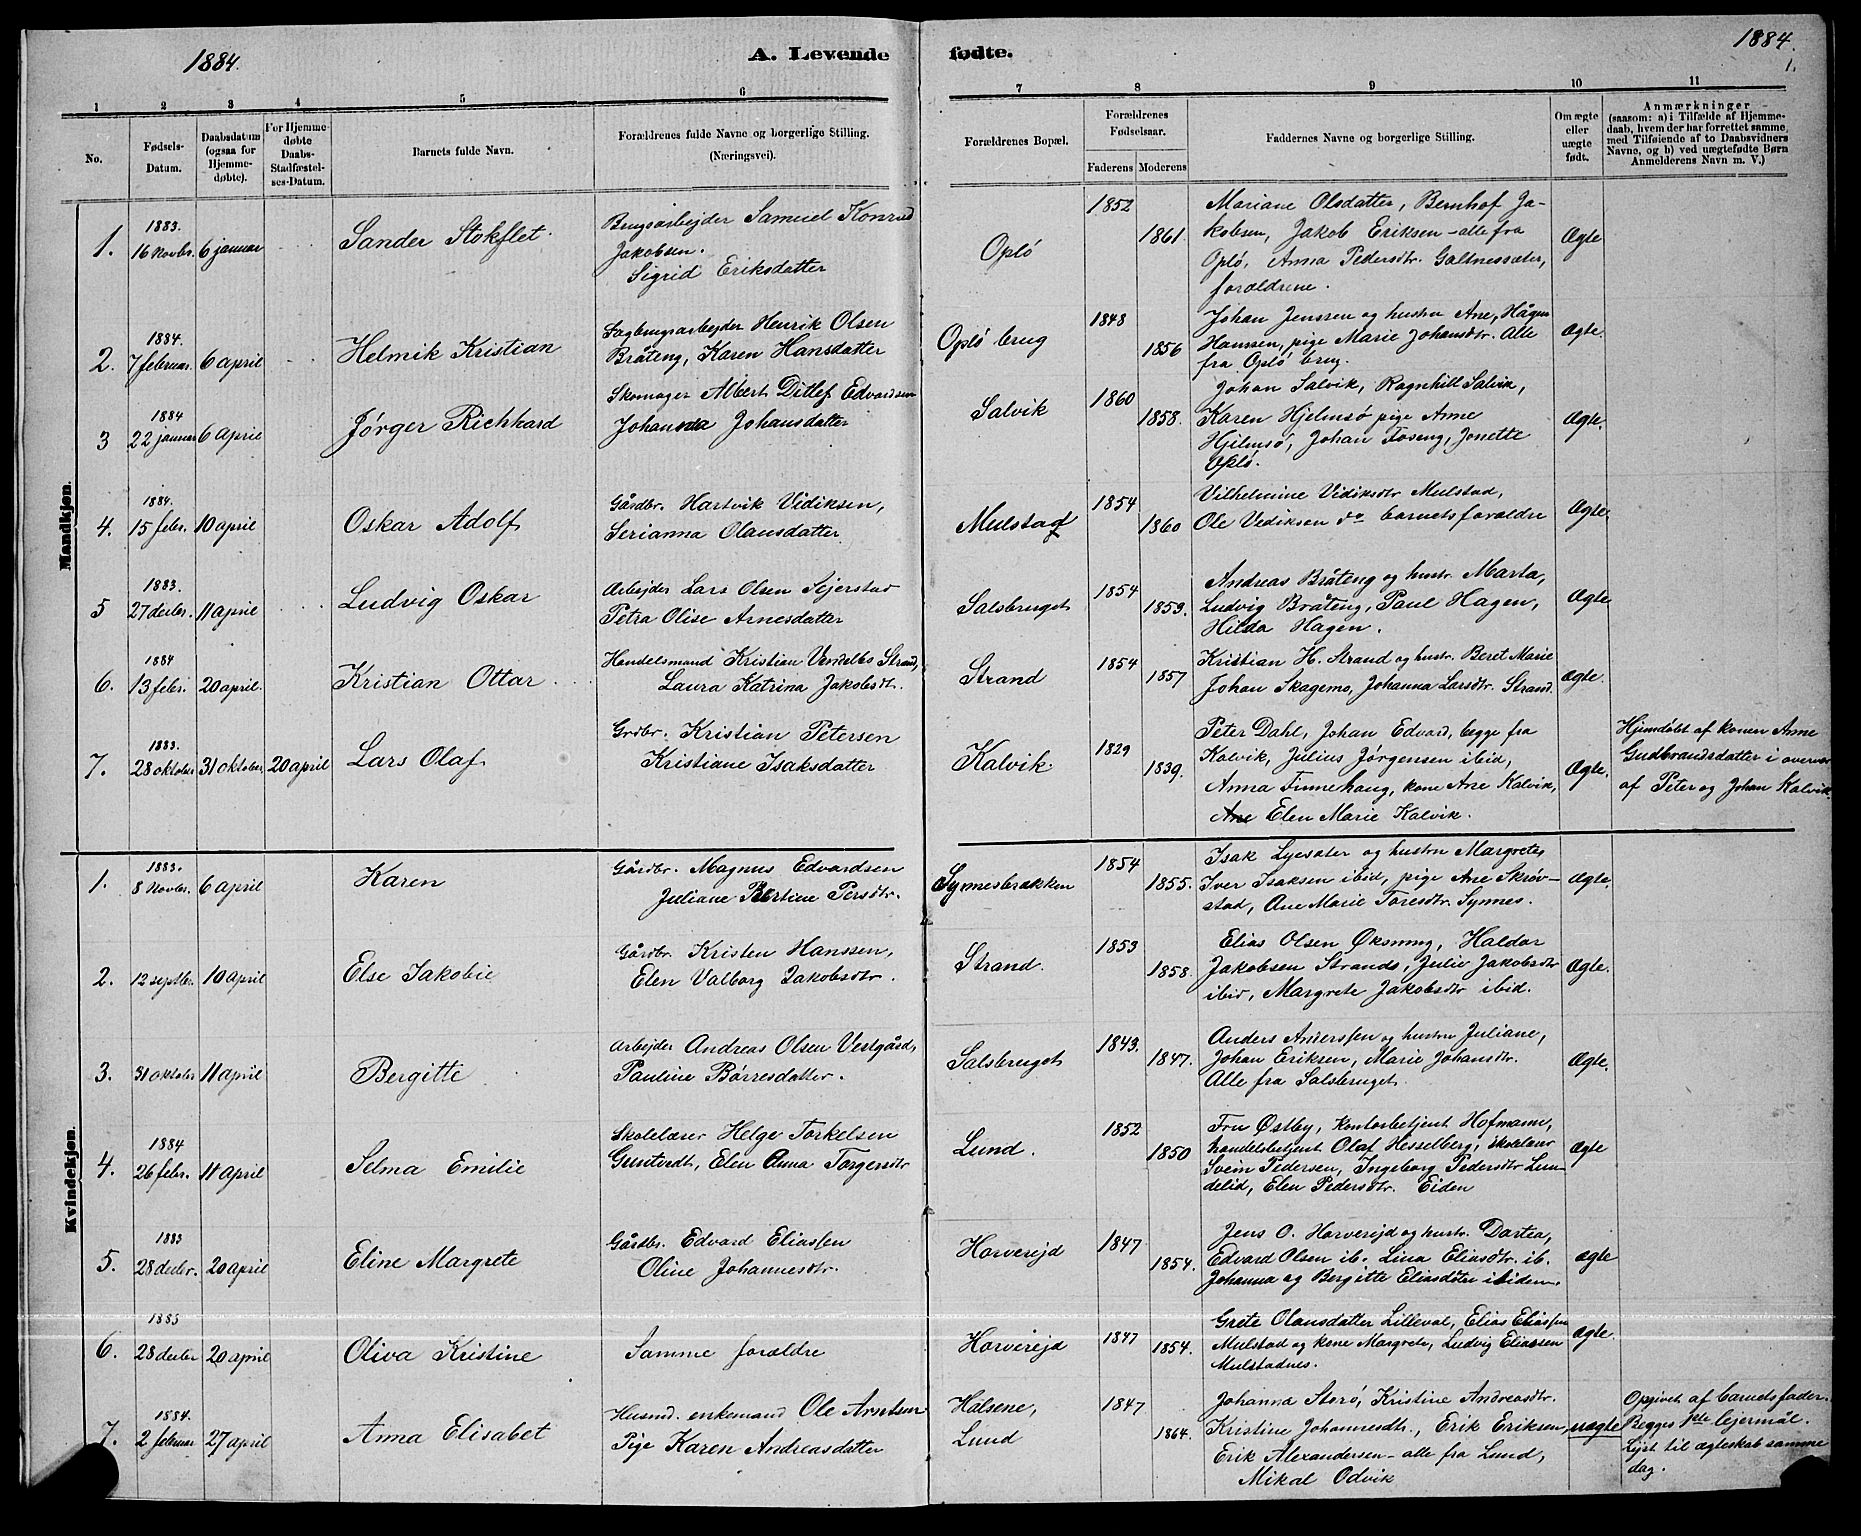 1884. A. Levende fødte. 1884.
1.
1 2 3 4 5 6 7 8 9 10 11
No. Fødsels-Datum. Daabsdatum (ogsaa for Hjemme-døbte). For Hjemme-døbte Daabs-Stadfæstel-ses-Datum. Barnets fulde Navn. Forældrenes fulde Navne og borgerlige Stilling. (Næringsvei). Forældrenes Bopæl. Forældrenes Fødselsaar. Faderens Moderens Faddernes Navne og borgerlige Stilling. Om ægte eller uægte født. Anmærkninger (saasom: a) i Tilfælde af Hjemme-daab, hvem der har forrettet samme, med Tilføiende af to Daabsvidners Navne, og b) ved uægtefødte Børn Anmelderens Navn m. V.)
Mandkjøn.
1. 1883. 16 Novbr. 6 januar Sander Stokflet. Brugsarbejder Samuel Konrad
Jakobsen.
Sigrid Eriksdatter
Opló 1852 1861. Mariane Olsdatter, Bernhof Ja-
kobsen, Jakob Eriksen - alle fra
Opló, Anna Pedersdtr. Galtnessæter,
forældrene.
Ægte
2. 1884. 7 februar. 6 april Helmik Kristian Sagbrugsarbejder Henrik Olsen
Bråteng, Karen Hansdatter
Opló brug 1848 1856 Johan Jenssen og hustru Ane, Hågen
Hanssen, pige Marie Johansdtr. Alle
fra Opló brug.
Ægte.
3 1884 22 januar 6 April Jórger Richhard Skomager Albert Ditlef Edvardsen
Johanna Johansdatter
Salvik 1860 1858. Johan Salvik, Ragnhill Salvik,
Karen Hjelmsó pige Anne
Hjelmsó, Johan Foseng, Jonette
Opló.
Ægte.
4. 1884. 15 febr. 10 april Oskar Adolf Gårdbr. Hartvik Vidiksen,
Serianna Olausdatter
Mulstad 1854 1860 Vilhelmine Vidiksdtr Mulstad,
Ole Vediksen do barnets forældre
Ægte.
5 1883. 27 decbr. 11 april Ludvig Oskar Arbejder Lars Olsen Sejerstad
Petra Olise Arnesdatter
Salsbruget 1854 1853. Andreas Bråteng og hustr. Marta,
Ludvig Bråteng, Paul Hagen,
Hilda Hagen.
Ægte
6. 1884 13 febr. 20 april. Kristian Ottar Handelsmand Kristian Vendelbo Strand,
Laura Katrina Jakobsdtr.
Strand 1854 1857 Kristian H. Strand og hustr. Beret Marie
Johan Skagemo, Johanna Larsdtr. Strand.
Ægte.
7. 1883. 28 oktober 31 oktober 20 april Lars Olaf Grdbr. Kristian Petersen
Kristiane Isaksdatter
Kalvik. 1829 1839. Peter Dahl, Johan Edvard, begge fra
Kalvik, Julius Jórgensen ibid,
Anna Finnehaug, kone Ane Kalvik,
Ane Elen Marie Kalvik.
Ægte. Hjemdóbt af konen Anne
Gudbrandsdatter i overvær
af Peter og Johan Kalvik.
Kvindekjøn.
1. 1883. 8 Novbr. 6 april Karen Gårdbr. Magnus Edvardsen
Juliane Bertine Persdtr.
Synnesbrækken 1854 1855. Isak Lyesæter og hustru Margrete,
Iver Isaksen ibid, pige Ane Skróv-
stad, Ane Marie Toresdtr. Synnes.
Ægte.
2. 12 septbr. 10 april Else Jakobie Gårdbr. Kristen Hanssen,
Elen Valborg Jakobsdtr.
Strand. 1853 1858. Elias Olsen Øksning, Haldor
Jakobsen Strand, Julie Jakobsdtr
ibid, Margrete Jakobsdtr ibid.
Ægte.
3. 31 oktober 11 april Bergitte Arbejder Andreas Olsen Vestgård,
Pauline Bórresdatter.
Salsbruget 1843. 1847. Anders Anderssen og hustru Juliane,
Johan Eriksen, Marie Johansdtr.
Alle fra Salsbruget.
Ægte.
4. 1884 26 febr. 11 april Selma Emilie Skolelærer Helge Torkelsen
Guntvedt, Elen Anna Torgersdtr
Lund. 1852 1850 Fru Østby, kontorbetjent Hofmann,
handelsbetjent Olaf Hesselberg, skolelærer
Svein Pedersen, Ingeborg Pedersdtr Lun-
delid, Elen Pedersdtr. Eiden
Ægte
5. 1883 28 decbr. 20 april Eline Margrete Gårdbr. Edvard Eliassen
Oline Johannesdtr.
Horverejd 1847 1854. Jens O. Horverejd og hustr. Dortea,
Edvard Olsen ib. Lina Eliasdtr. ib.
Johanna og Bergitte Eliasdótre ibidem.
ægte
6. 1883 28 decbr 20 april Oliva Kristine Samme forældre
Horverejd 1847 1854. Grete Olausdatter Lilleval, Elias Eliassen
Mulstad og kone Margrete, Ludvig Eliassen
Mulstadnes.
Ægte.
7. 1884. 2 februar 27 april Anna Elisabet Husmd. enkemand Ole Arntsen
Pige Karen Andreasdatter
Halsene,
Lund
1847 1864. Johanna Storó, Kristine Andreasdtr.
Kristine Johannesdtr., Erik Eriksen,
Erik Alexandersen - alle fra Lund,
Mikal Odvik
uægte Opgivet af barnets fader.
Begges 1ste lejermål.
Lyst til ægteskab samme
dag.